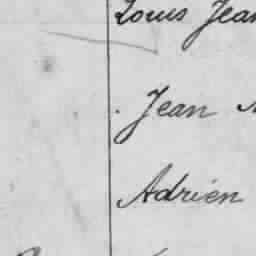 Louis Jean
Jean
Adrien